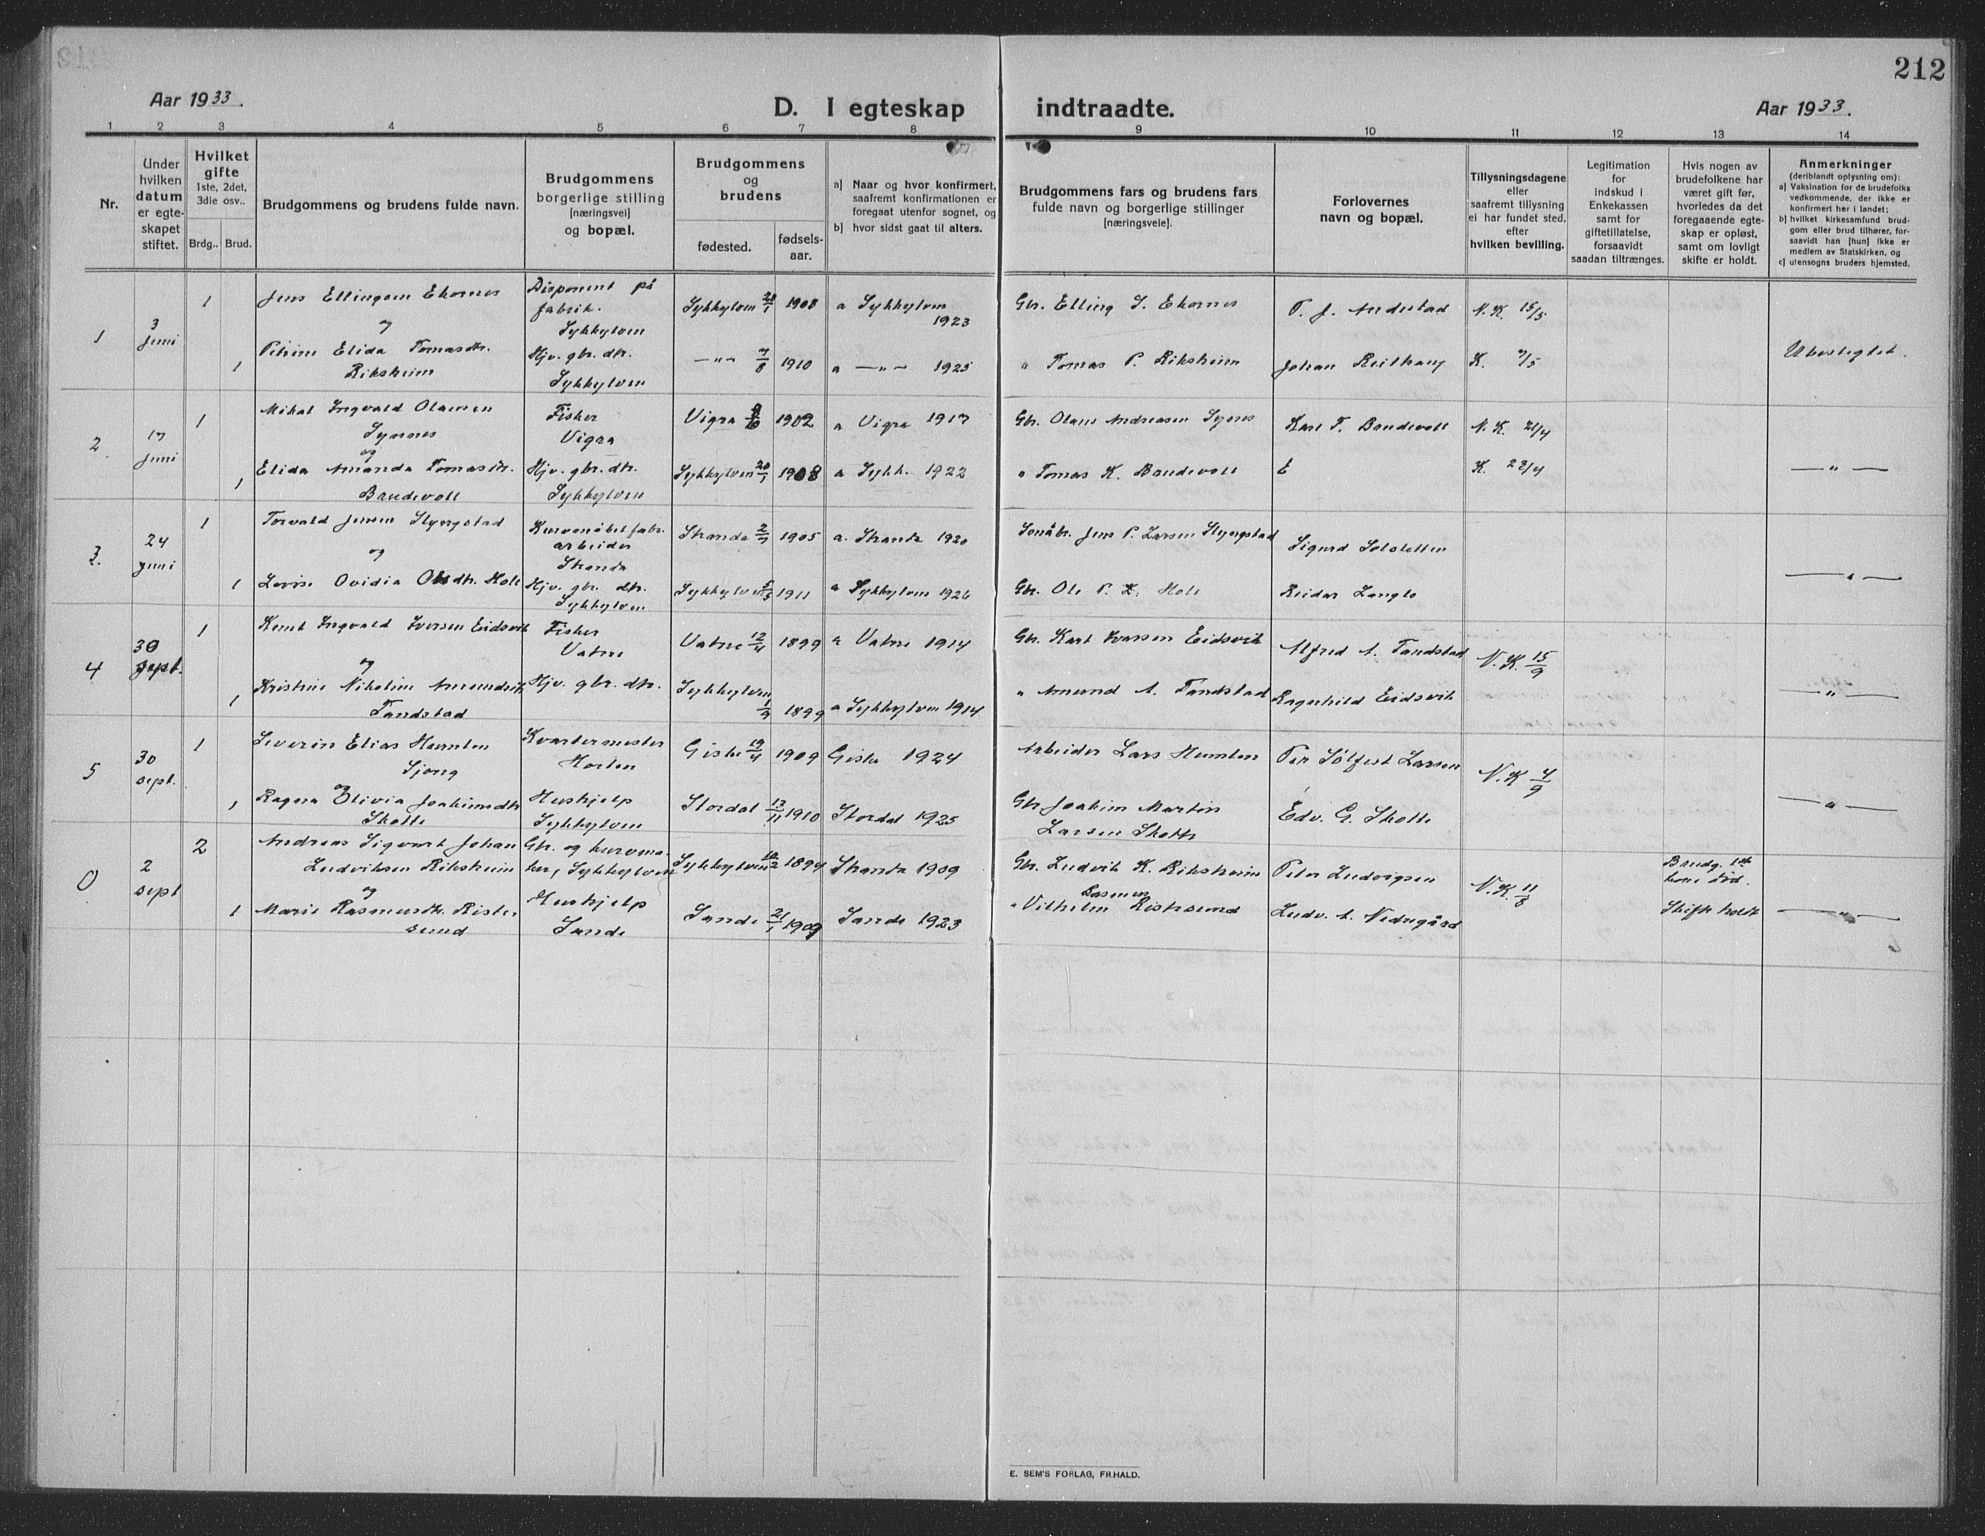 212
Aar 1933.
D. I egteskap indtraadte.
Aar 1933.
1 2 3 4 5 6 7 8 9 10 11 12 13 14
Nr.
Under hvilken datum er egteskapet stiftet.
Hvilket gifte 1ste, 2det, 3die osv..
Brdg.. Brud.
Brudgommens og brudens fulde navn.
Brudgommens borgerlige stilling [næringsvei] og bopæl.
Brudgommens og brudens
fødested.
fødselsaar.
a) Naar og hvor konfirmert, saafremt konfirmationen er foregaat utenfor sognet, og
b) hvor sidst gaat til alters.
Brudgommens fars og brudens fars fulde navn og borgerlige stillinger [næringsvei].
Forlovernes navn og bopæl.
Tillysningsdagene eller saafremt tillysning ei har fundet sted, efter hvilken bevilling.
Legitimation for indskud i Enkekassen samt for giftetilladelse, forsaavidt saadan tiltrænges.
Hvis nogen av brudefolkene har været gift før, hvorledes da det foregaaende egteskap er opløst, samt om lovligt skifte er holdt.
Anmerkninger (deriblandt oplysning om):
a) Vaksination for de brudefolks vedkommende, der ikke er konfirmert her i landet;
b) hvilket kirkesamfund brudgom eller brud tilhører, forsaavidt han [hun] ikke er medlem av Statskirken, og
c) utensogns bruders hjemsted.
1 3 juni 1 Jens Ellingsen Ekornes Disponent på fabrik. Sykkylven 28/1 1908 a Sykkylven 1923 Gbr. Elling J. Ekornes P. J. Andestad N. K. 15/5
og
1 Petrine Elida Tomasdtr. Riksheim Hjv. gbr. dtr. Sykkylven —"— 7/8 1910 a —"— 1925 " Tomas P. Riksheim Johan Reithaug K. 7/5 Ubesteglet.
2. 17 juni 1 Mikal Ingvald Olausen Synnes Fisker Vigra Vigra 1902 a Vigra 1917 Gbr. Olaus Andreasen Synes Karl T. Bandevoll N. K. 21/4
og
1 Elida Amanda Tomasdtr. Bandevoll Hjv. gbr. dtr. Sykkylven Sykkylven 20/1 1908 a Sykk. 1922 " Tomas K. Bandevoll E K. 22/4 —"—
3. 24 juni 1 Torvald Jensen Slyngstad Kurvemöbelfabr. arbeider Stranda Stranda 2/7 1905 a. Stranda 1920 Småbr. Jens P. Larsen Slyngstad Sigurd Solsletten
og
1 Lovise Ovidia Olsdtr. Hole Hjv. gbr. dtr. Sykkylven Sykkylven 5/5 1911 a Sykkylven 1926 Gbr. Ole P. L. Hole Reidar Langlo —"—
4 30 sept. 1 Knut Ingvald Iversen Eidsvik Fisker Vatne Vatne 12/4 1899 a Vatne 1914 Gbr. Kart Iversen Eidsvik Alfred A. Tandstad N. K. 15/9
og
1 Kristine Nikoline Amundsdtr. Tandstad Hjv. gbr. dtr. Sykkylven 1/9 1899 a Sykkylven 1914 " Amund A. Tandstad Ragnhild Eidsvik —"—
5 30 sept. 1 Severin Elias Humlen Sjong Kvartermester Horten Giske 19/4 1909 Giske 1924 Arbeider Lars Humlen Per Sölfest Larsen N. K 4/9
og
1 Ragna Olivia Joakimsdtr Skotte Hushjelp Sykkylven Stordal 13/11 1910 Stordal 1925 Gbr Joakim Martin Larsen Skotte Edv. G. Skotte —"—
0 2 sept 2 Andreas Sigvart Johan Ludviksen Riksheim Gbr. og kurvmaker, Sykkylven Sykkylven 1894 Stranda 1909 Gbr. Ludvik K. Riksheim Peter Ludvigsen N. K. 11/8 Brudg. 1st kone död.
og
1 Marie Rasmusdtr. Ristesund Hushjelp Sande Sande 21/1 1909 Sande 1923 " Vilhelm Rasmus Ristesund Ludv. A. Nedregård Skifte holdt —"—
E. SEM'S FORLAG, FR.HALD.